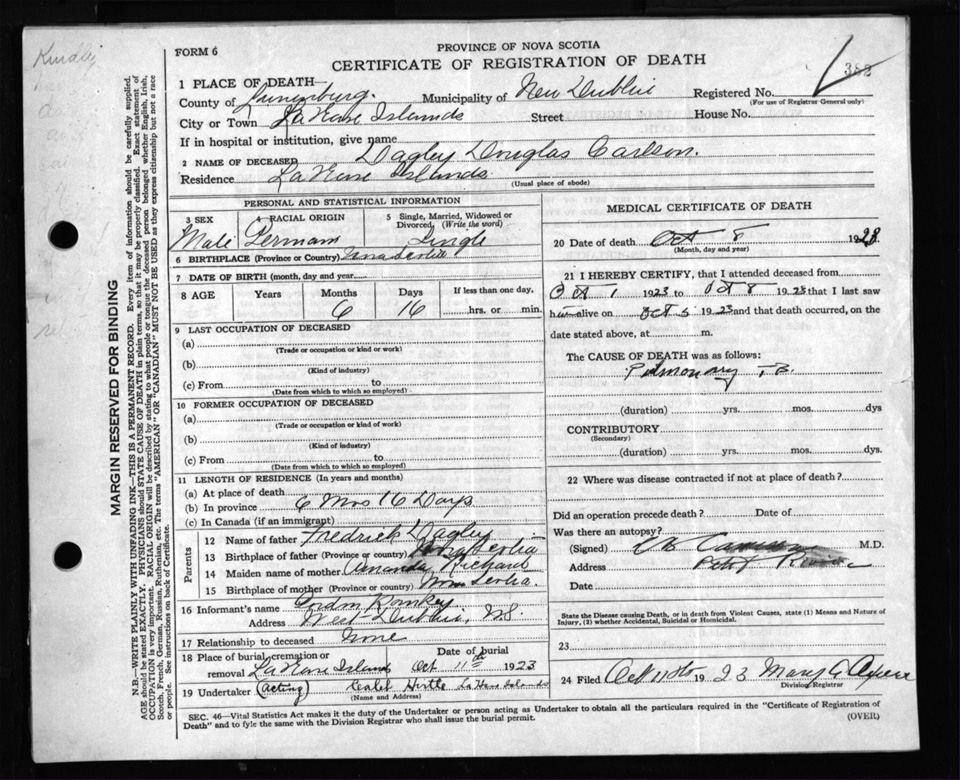 Kindly
MARGIN RESERVED FOR BINDING
N.B.—WRITE PLAINLY WITH UNFADING INK—THIS IS A PERMANENT RECORD. Every item of information should be carefully supplied.
AGE should be stated EXACTLY. PHYSICIANS should STATE CAUSE OF DEATH in plain terms, so that it may be properly classified. Exact statement of
OCCUPATION is very important. RACIAL ORIGIN will be described by stating to what people or tongue the deceased person belonged whether English, Irish,
Scotch, French, German, Russian, Ruthenian, etc. The terms "AMERICAN" or "CANADIAN" MUST NOT BE USED as they express citizenship but not a race
or people. See instructions on back of Certificate.
FORM 6
PROVINCE OF NOVA SCOTIA
CERTIFICATE OF REGISTRATION OF DEATH
382
1 PLACE OF DEATH—
County of Lunenburg. Municipality of New Dublin Registered No.
(For use of Registrar General only)
City or Town LaHave Islands Street House No.
If in hospital or institution, give name
2 NAME OF DECEASED Dagley Douglas Carlson.
Residence LaHave Islands
(Usual place of abode)
PERSONAL AND STATISTICAL INFORMATION
3 SEX 4 RACIAL ORIGIN 5 Single, Married, Widowed or Divorced (Write the word)
Male German Single
6 BIRTHPLACE (Province or Country) Nova Scotia
7 DATE OF BIRTH (month, day and year)
8 AGE Years Months Days If less than one day.
6 16 hrs. or min.
9 LAST OCCUPATION OF DECEASED
(a)
(Trade or occupation or kind or work)
(b)
(Kind of industry)
(c) From to
(Date from which to which so employed)
10 FORMER OCCUPATION OF DECEASED
(a)
(Trade or occupation or kind of work)
(b)
(Kind of industry)
(c) From to
(Date from which to which so employed)
11 LENGTH OF RESIDENCE (In years and months)
(a) At place of death
(b) In province 6 Mos 16 Days
(c) In Canada (if an immigrant)
Parents
12 Name of father Fredrick Dagley
13 Birthplace of father (Province or country) Nova Scotia
14 Maiden name of mother Amanda Richard
15 Birthplace of mother (Province or country) Nova Scotia.
16 Informant's name Romkey
Address West Dublin, NS.
17 Relationship to deceased None
18 Place of burial, cremation or removal LaHave Islands Date of burial Oct 11th 1923
19 Undertaker (acting) Caleb Hirtle LaHave Islands
(Name and Address)
MEDICAL CERTIFICATE OF DEATH
20 Date of death Oct 8 1923
(Month, day and year)
21 I HEREBY CERTIFY, that I attended deceased from
Oct 1 1923 to Oct 8 1923 that I last saw
him alive on Oct 5 1923 and that death occurred, on the
date stated above, at m.
The CAUSE OF DEATH was as follows:
Pulmonary T.B.
(duration) yrs. mos. dys
CONTRIBUTORY
(Secondary)
(duration) yrs. mos. dys.
22 Where was disease contracted if not at place of death?
Did an operation precede death? Date of
Was there an autopsy?
(Signed) M.D.
Address
Date
State the Disease causing Death, or in death from Violent Causes, state (1) Means and Nature of
Injury, (2) whether Accidental, Suicidal or Homicidal.
23
24 Filed Oct 11th 1923 Mary
Division Registrar
SEC. 46—Vital Statistics Act makes it the duty of the Undertaker or person acting as Undertaker to obtain all the particulars required in the "Certificate of Registration of
Death" and to fyle the same with the Division Registrar who shall issue the burial permit.
(OVER)